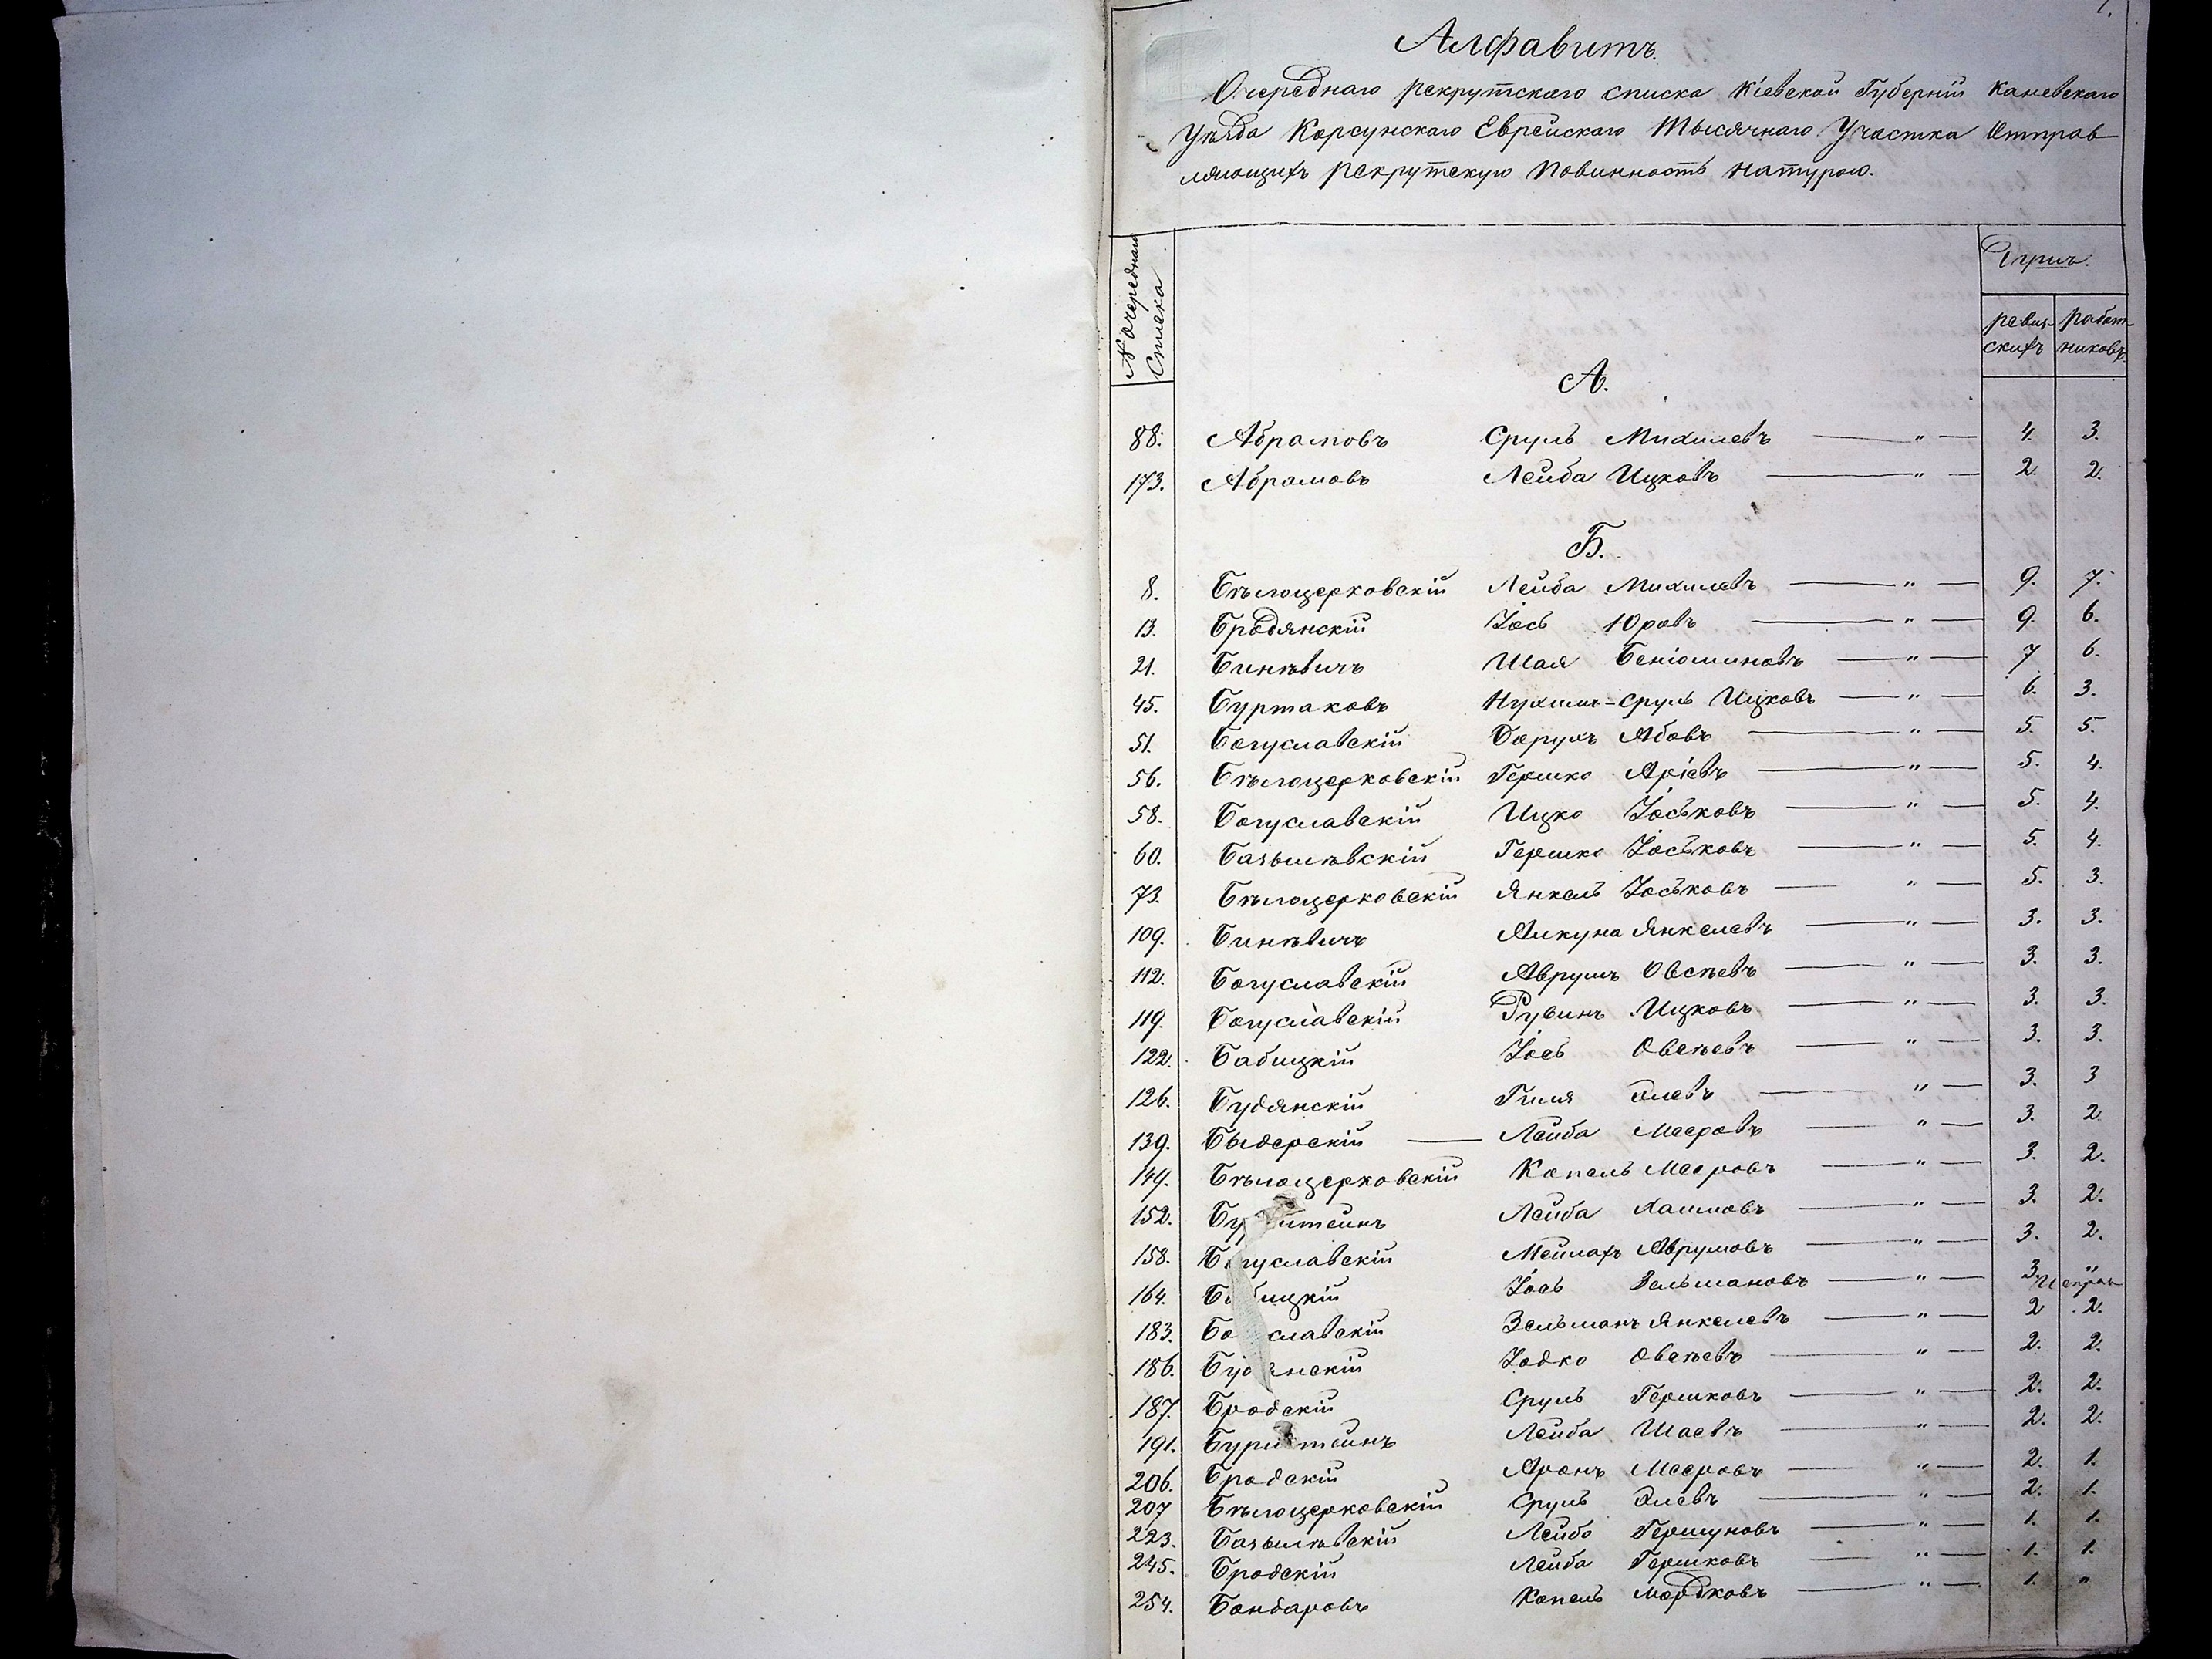 1.
Алфавитъ.
Очереднаго рекрутскаго списка Кіевской Губерніи Каневскаго
Уѣзда Корсунскаго Еврейскаго Тысячнаго Участка Отправ
ляющихъ рекрутскую повинность натурою.
№ очереднаго Списка
Душъ.
ревиз- работ-
скихъ никовъ
А.
88. Абрамовъ Сруль Михилевъ — " — 4. 3.
173. Абрамовъ Лейба Ицковъ — " — 2. 2.
Б.
8. Бѣлоцерковскій Лейба Михилевъ — " — 9. 7.
13. Бродянскій Іось Юровъ — " — 9. 6.
21. Бинѣвичъ Шая Беніоминовъ — " — 7 6.
45. Буртаковъ Нухимъ-Сруль Ицковъ — " — 6. 3.
51. Богуславскій Борухъ Абовъ — " — 5. 5.
56. Бѣлоцерковскій Гершко Аріевъ — " — 5. 4.
58. Богуславскій Ицко Іоськовъ — " — 5. 4.
60. Базылѣвскій Гершко Іоськовъ — " — 5. 4.
73. Бѣлоцерковскій Янкель Іоськовъ — " — 5. 3.
109. Бинѣвичъ Янкелевъ — " — 3. 3.
112. Богуславскій Аврумъ Овсѣевъ — " — 3. 3.
119. Богуславскій Рувинъ Ицковъ — " — 3. 3.
122. Бабицкій Іось Овсѣевъ — " — 3. 3.
126. Будянскій Гиля Элевъ — " — 3. 3
139. Быдерскій — Лейба Мееровъ — " — 3. 2
149. Бѣлоцерковскій Копель Мееровъ — " — 3. 2.
152. Лейба Хаимовъ — " — 3. 2.
158. Богуславскій Мейлахъ Аврумовъ — " — 3. 2.
164. Бабицкій Іось Зельмановъ — " — 3. "
183. Богуславскій Зельманъ Янкелевъ — " — 2 2.
186. Будянскій Іодко Овсѣевъ — " — 2. 2.
187. Бродскій Сруль Гершковъ — " — 2. 2.
191. Бурштейнъ Лейба Шаевъ — " — 2. 2.
206. Бродскій Аронъ Мееровъ — " — 2. 1.
207 Бѣлоцерковскій Сруль Элевъ — " — 2. 1.
223. Базылѣвскій Лейба Гершуновъ — " — 1. 1.
245. Бродскій Лейба Гершковъ — " — 1. 1.
254. Бондаровъ Копель Мордковъ — " — 1. "